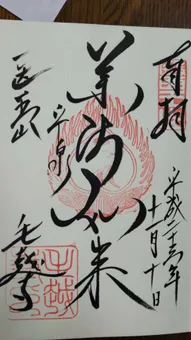 奉拝
平成二十六年
十一月十日
薬師如来
平泉
医王山
毛越寺